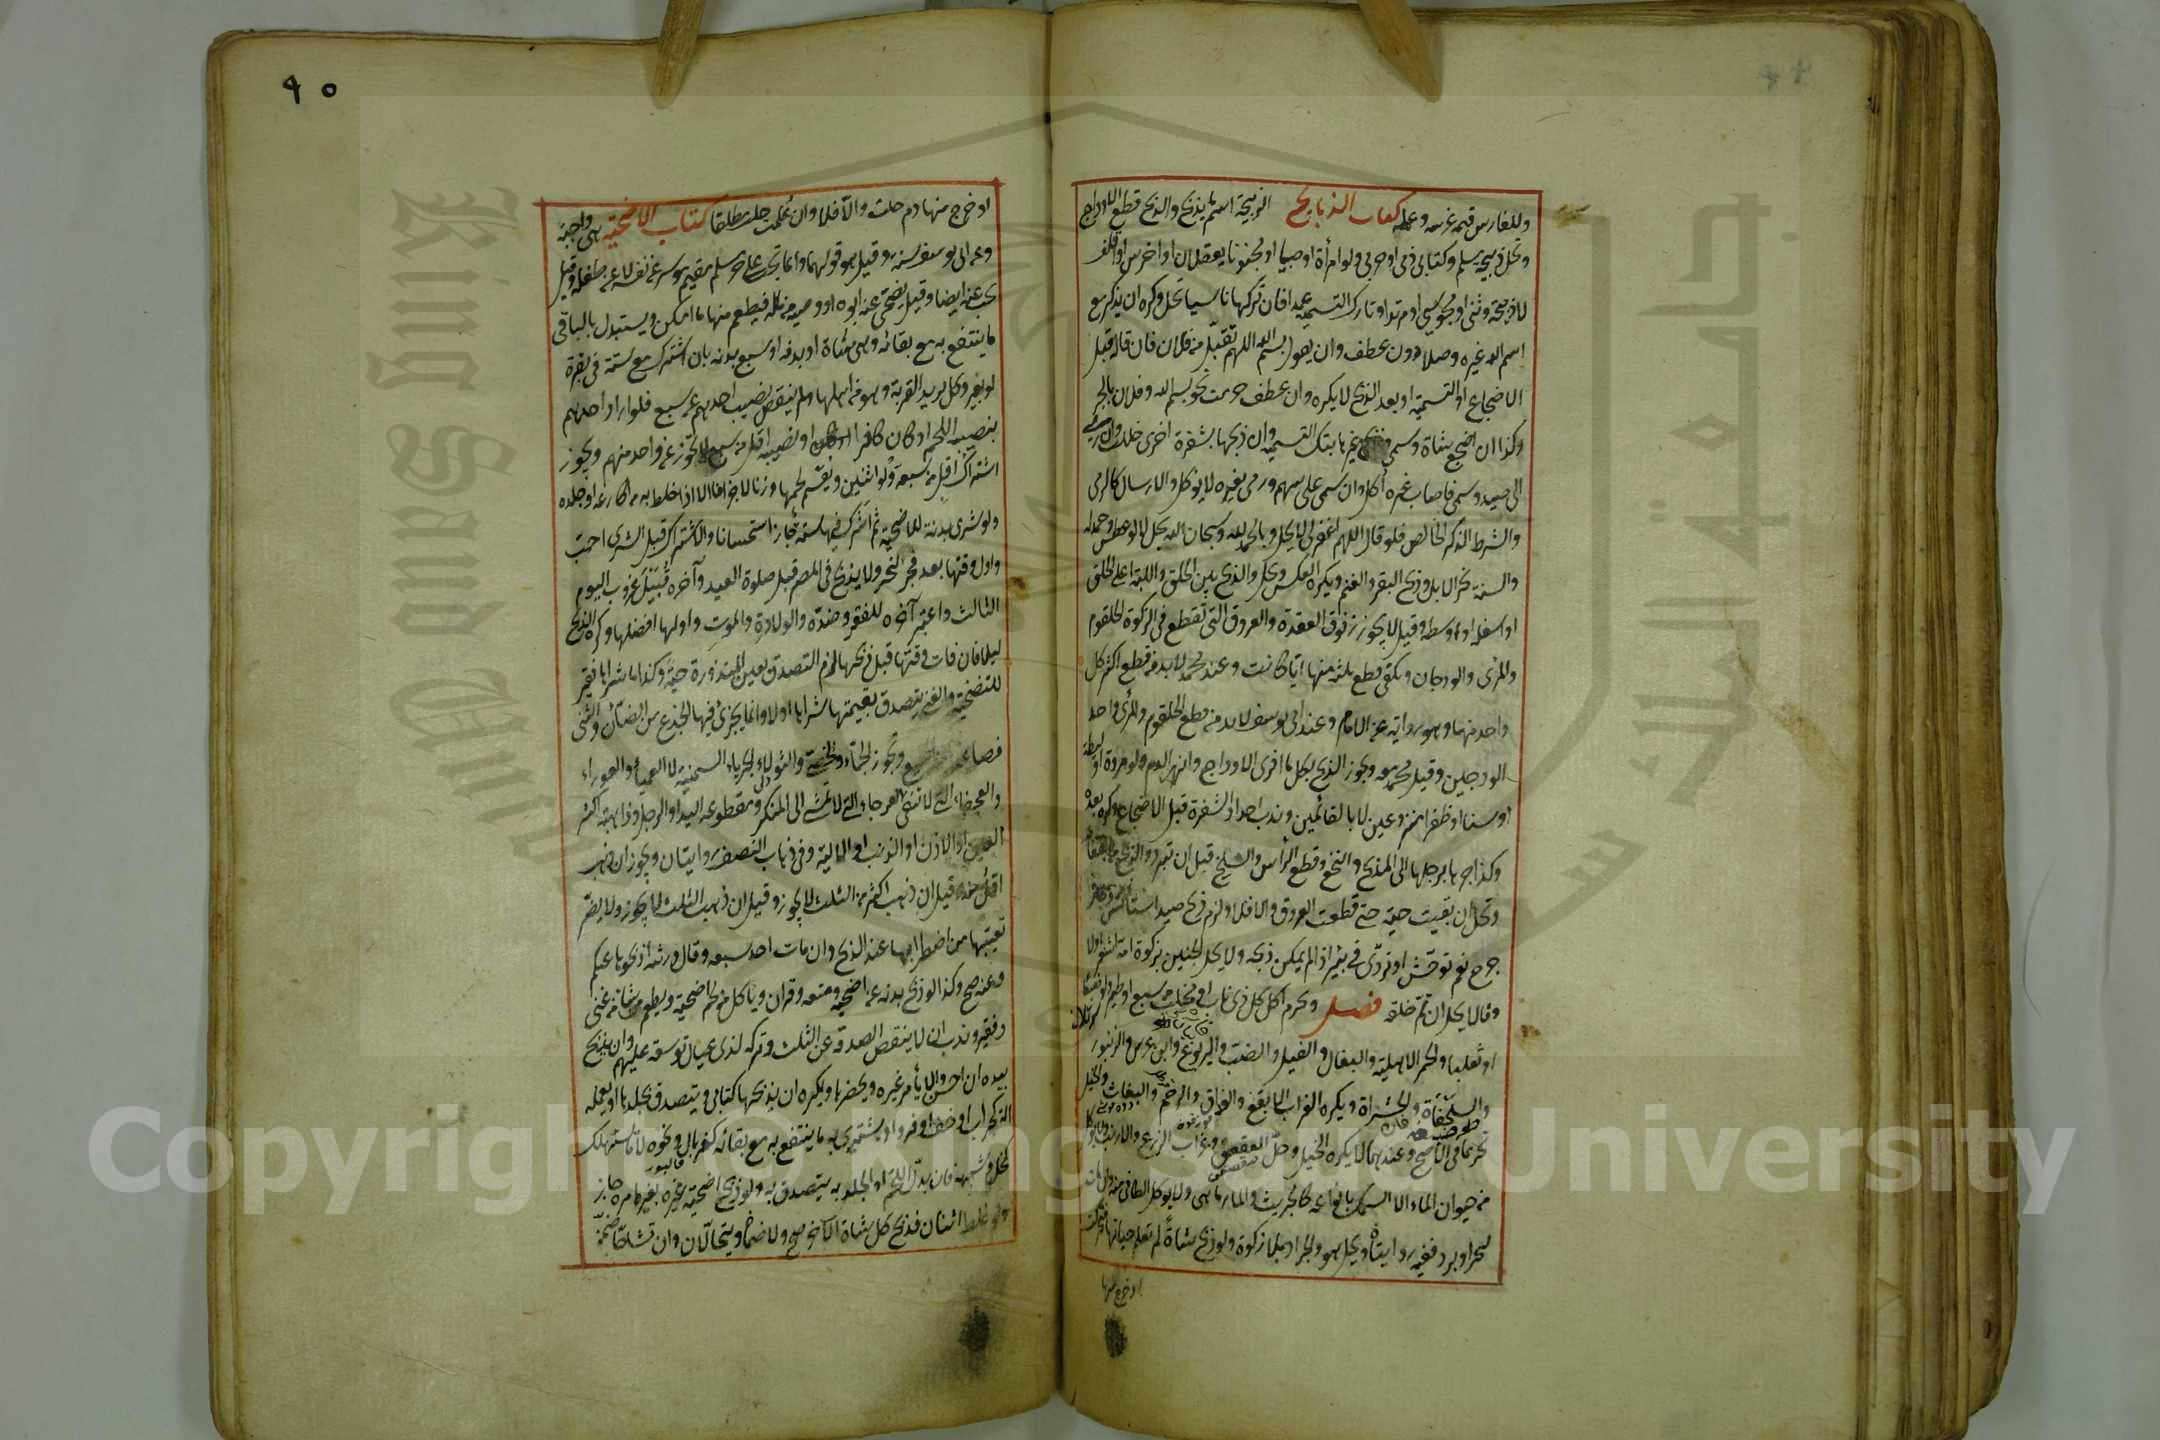 وللغارس قيمة غرسه وعمله كتاب الذبايح الذبيحة اسم ما يذبح والذبح قطع الاوداج
وتحل ذبيحة مسلم وكتابي ذمي او حربي ولو امرأة او صبيا او مجنونا يعقلان او اخرس او اقلف
لا ذبيحة وثني او مجوسي او مرتد او تارك التسمية عمدا فان تركها ناسيا تحل وكره ان يذكر مع
اسم الله غيره وصلا دون عطف وان يقول بسم الله اللهم تقبل من فلان فان قاله قبل
الاضجاع او التسمية او بعد الذبح لا يكره وان عطف حرمت نحو بسم الله وفلان بالجر
وكذا ان اضجع شاة وسمى وذبح غيرها بتلك التسمية وان ذبحها بشفرة اخرى حلت وان رمى
الى صيد وسمى فاصاب غيره أكل وان سمى على سهم ورمى بغيره لا يوكل والارسال كالرمى
والشرط الذكر الخالص فلو قال اللهم اغفر لي لا يحل وبالحمد لله وسبحان الله يحل لا لو عطس وحمد له
والسنة نحر الابل وذبح البقر والغنم ويكره العكس ويحل والذبح بين الحلق واللبة اعلى الحلق
او اسفله او اوسطه وقيل لا يجوز فوق العقدة والعروق التي تقطع في الزكوة الحلقوم
والمرئ والودجان ويكفي قطع ثلثة منها ايا كانت وعند محمد لا بد من قطع اكثر كل
واحد منها وهو رواية عن الامام وعند ابي يوسف لا بد من قطع الحلقوم والمرئ واحد
الودجين وقيل محمد معه ويجوز الذبح بكل ما افرى الاوداج وانهر الدم ولو مروة او ليطة
او سنا او ظفرا منزوعين لا بالقائمين وندب احداد الشفرة قبل الاضجاع وكره بعده
وكذا جرها برجلها الى المذبح والنخع وقطع الرأس والسلخ قبل ان تبرد والذبح من القفا
وتحل ان بقيت حية حتى قطعت العروق والا فلا ولزم ذبح صيد استأنس وجاز
جرح نعم توحش او تردى في بئر اذا لم يمكن ذبحه ولا يحل الجنين بزكوة امه اشعر او لا
وقالا يحل ان تم خلقه فصل ويحرم اكل كل ذي ناب او مخلب من سبع او طير ولو ضبعا
او ثعلبا والحمر الاهلية والبغال والفيل والضب واليربوع وابن عرس والزنبور
والسلحفاة والحشراة ويكره الغراب الابقع والغداف والرخم والبغاث والخيل
تحريما في الاصح وعندهما لا يكره الخيل وحل العقعق وغراب الزرع والارنب ولا يوكل
من حيوان الماء الا السمك بانواعه كالجريث والمارماهي ولا يوكل الطافي منه وان مات
لحر او برد ففيه روايتان ويحل هو والجراد بلا زكوة ولو ذبح شاة لم تعلم حياتها فتحركت
او خرج منها
٩٠
او خرج منها دم حلت والا فلا وان علمت حلت مطلقا كتاب الاضحية هي واجبة
وعن ابي يوسف سنة وقيل هو قولهما وانما تجب على حر مسلم مقيم موسر عن نفسه لا عن طفله وقيل
تجب عنه ايضا وقيل يضحي عنه ابوه او وصيه من ماله فيطعم منها ما امكن ويستبدل بالباقي
ما ينتفع به مع بقائه وهي شاة او بدنة او سبع بدنة بان اشترك مع ستة في بقرة
او بعير وكل يريد القربة وهو من اهلها ولم ينقص نصيب احدهم عن سبع فلو اراد احدهم
بنصيبه اللحم او كان كافرا او نصيبه اقل من سبع لا يجوز عن واحد منهم ويجوز
اشتراك اقل من سبعة ولو اثنين ويقسم لحمها وزنا لا جزافا الا اذا خلط به من اكارعه او جلده
ولو شرى بدنة للاضحية ثم اشرك فيها ستة جاز استحسانا والاشتراك قبل الشرى احب
واول وقتها بعد فجر النحر ولا يذبح في المصر قبل صلوة العيد وآخره قبيل غروب اليوم
الثالث واعتبر آخره للفقير وضده والولادة والموت واولها افضلها وكره الذبح
ليلا فان فات وقتها قبل ذبحها لزم التصدق بعين المنذورة حية وكذا ما شراها فقير
للتضحية والغني يتصدق بقيمتها شراها او لا وانما يجزئ فيها الجذع من الضأن والثني
فصاعدا من الجميع وتجوز الجماء والخصي والثولاء والجرباء السمينة لا العمياء والعوراء
والعجفاء التي لا تنقي والعرجاء التي لا تمشي الى المنسك ومقطوعة اليد او الرجل وذاهبة اكثر
العين او الاذن او الذنب او الالية وفي ذهاب النصف روايتان ويجوز ان ذهب
اقل منه وقيل ان ذهب اكثر من الثلث لا يجوز وقيل ان ذهب الثلث لا يجوز ولا يضر
تعيبها من اضطرابها عند الذبح وان مات احد سبعة وقال ورثته اذبحوها عنكم
وعنه صح وكذا لو ذبح بدنة عن اضحية ومتعة وقران ويأكل من لحم اضحيته ويطعم من شاء من غني
وفقير وندب ان لا ينقص الصدقة عن الثلث وتركه لذي عيال توسعة عليهم وان يذبح
بيده ان احسن والا يأمر غيره ويحضرها ويكره ان يذبحها كتابي ويتصدق بجلدها او يعمله
آلة كجراب او خف او فرو او يشتري به ما ينتفع به مع بقائه كغربال ونحوه لا ما يستهلك
كخل وشبهه فان بدل اللحم او الجلد به يتصدق به ولو ذبح اضحية غيره بغير امره جاز
ولو غلط اثنان فذبح كل شاة الآخر صح ولا ضمان ويتحالان وان تشاحا ضمن
Copyright © King Saud University